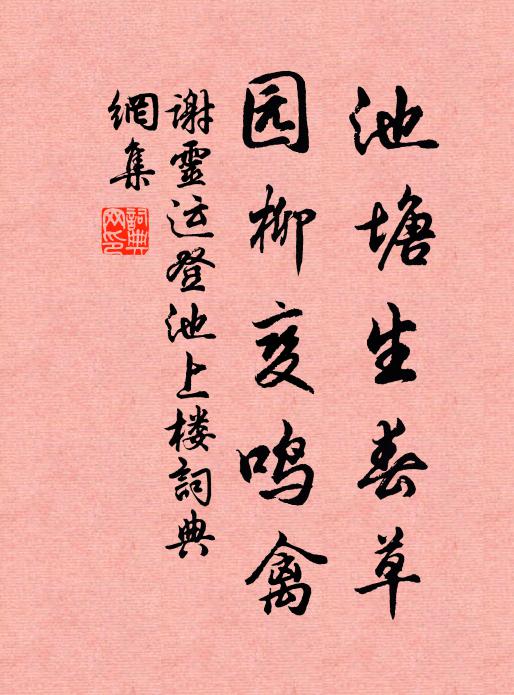 池塘生春草
园柳变鸣禽
谢靈运登池上楼詞典
網集
詞典
网印